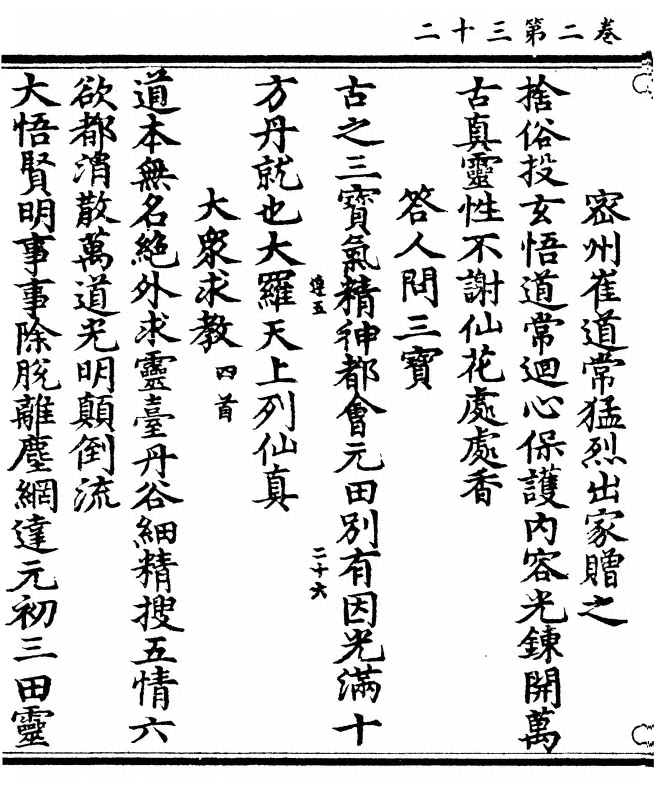 卷二第三十二
密州崔道常猛烈出家贈之
捨俗投玄悟道常迴心保護內容光鍊開萬
古真靈性不謝仙花處處香
答人問三寶
古之三寶氣精神都會元田別有因光滿十
連五
二十六
方丹就也大羅天上列仙真
大衆求教 四首
道本無名絶外求靈臺丹谷細精搜五情六
欲都消散萬道光明顛倒流
大悟賢明事事除脫離塵網達元初三田靈